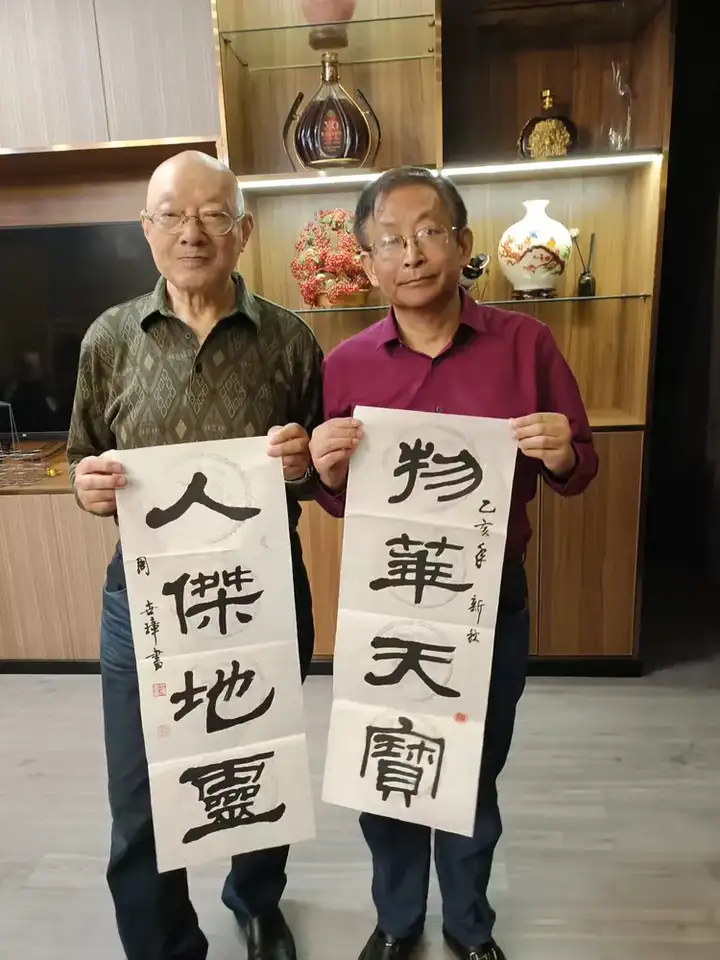 乙亥年 新秋
物華天寶
人傑地靈
周 璋書
XO